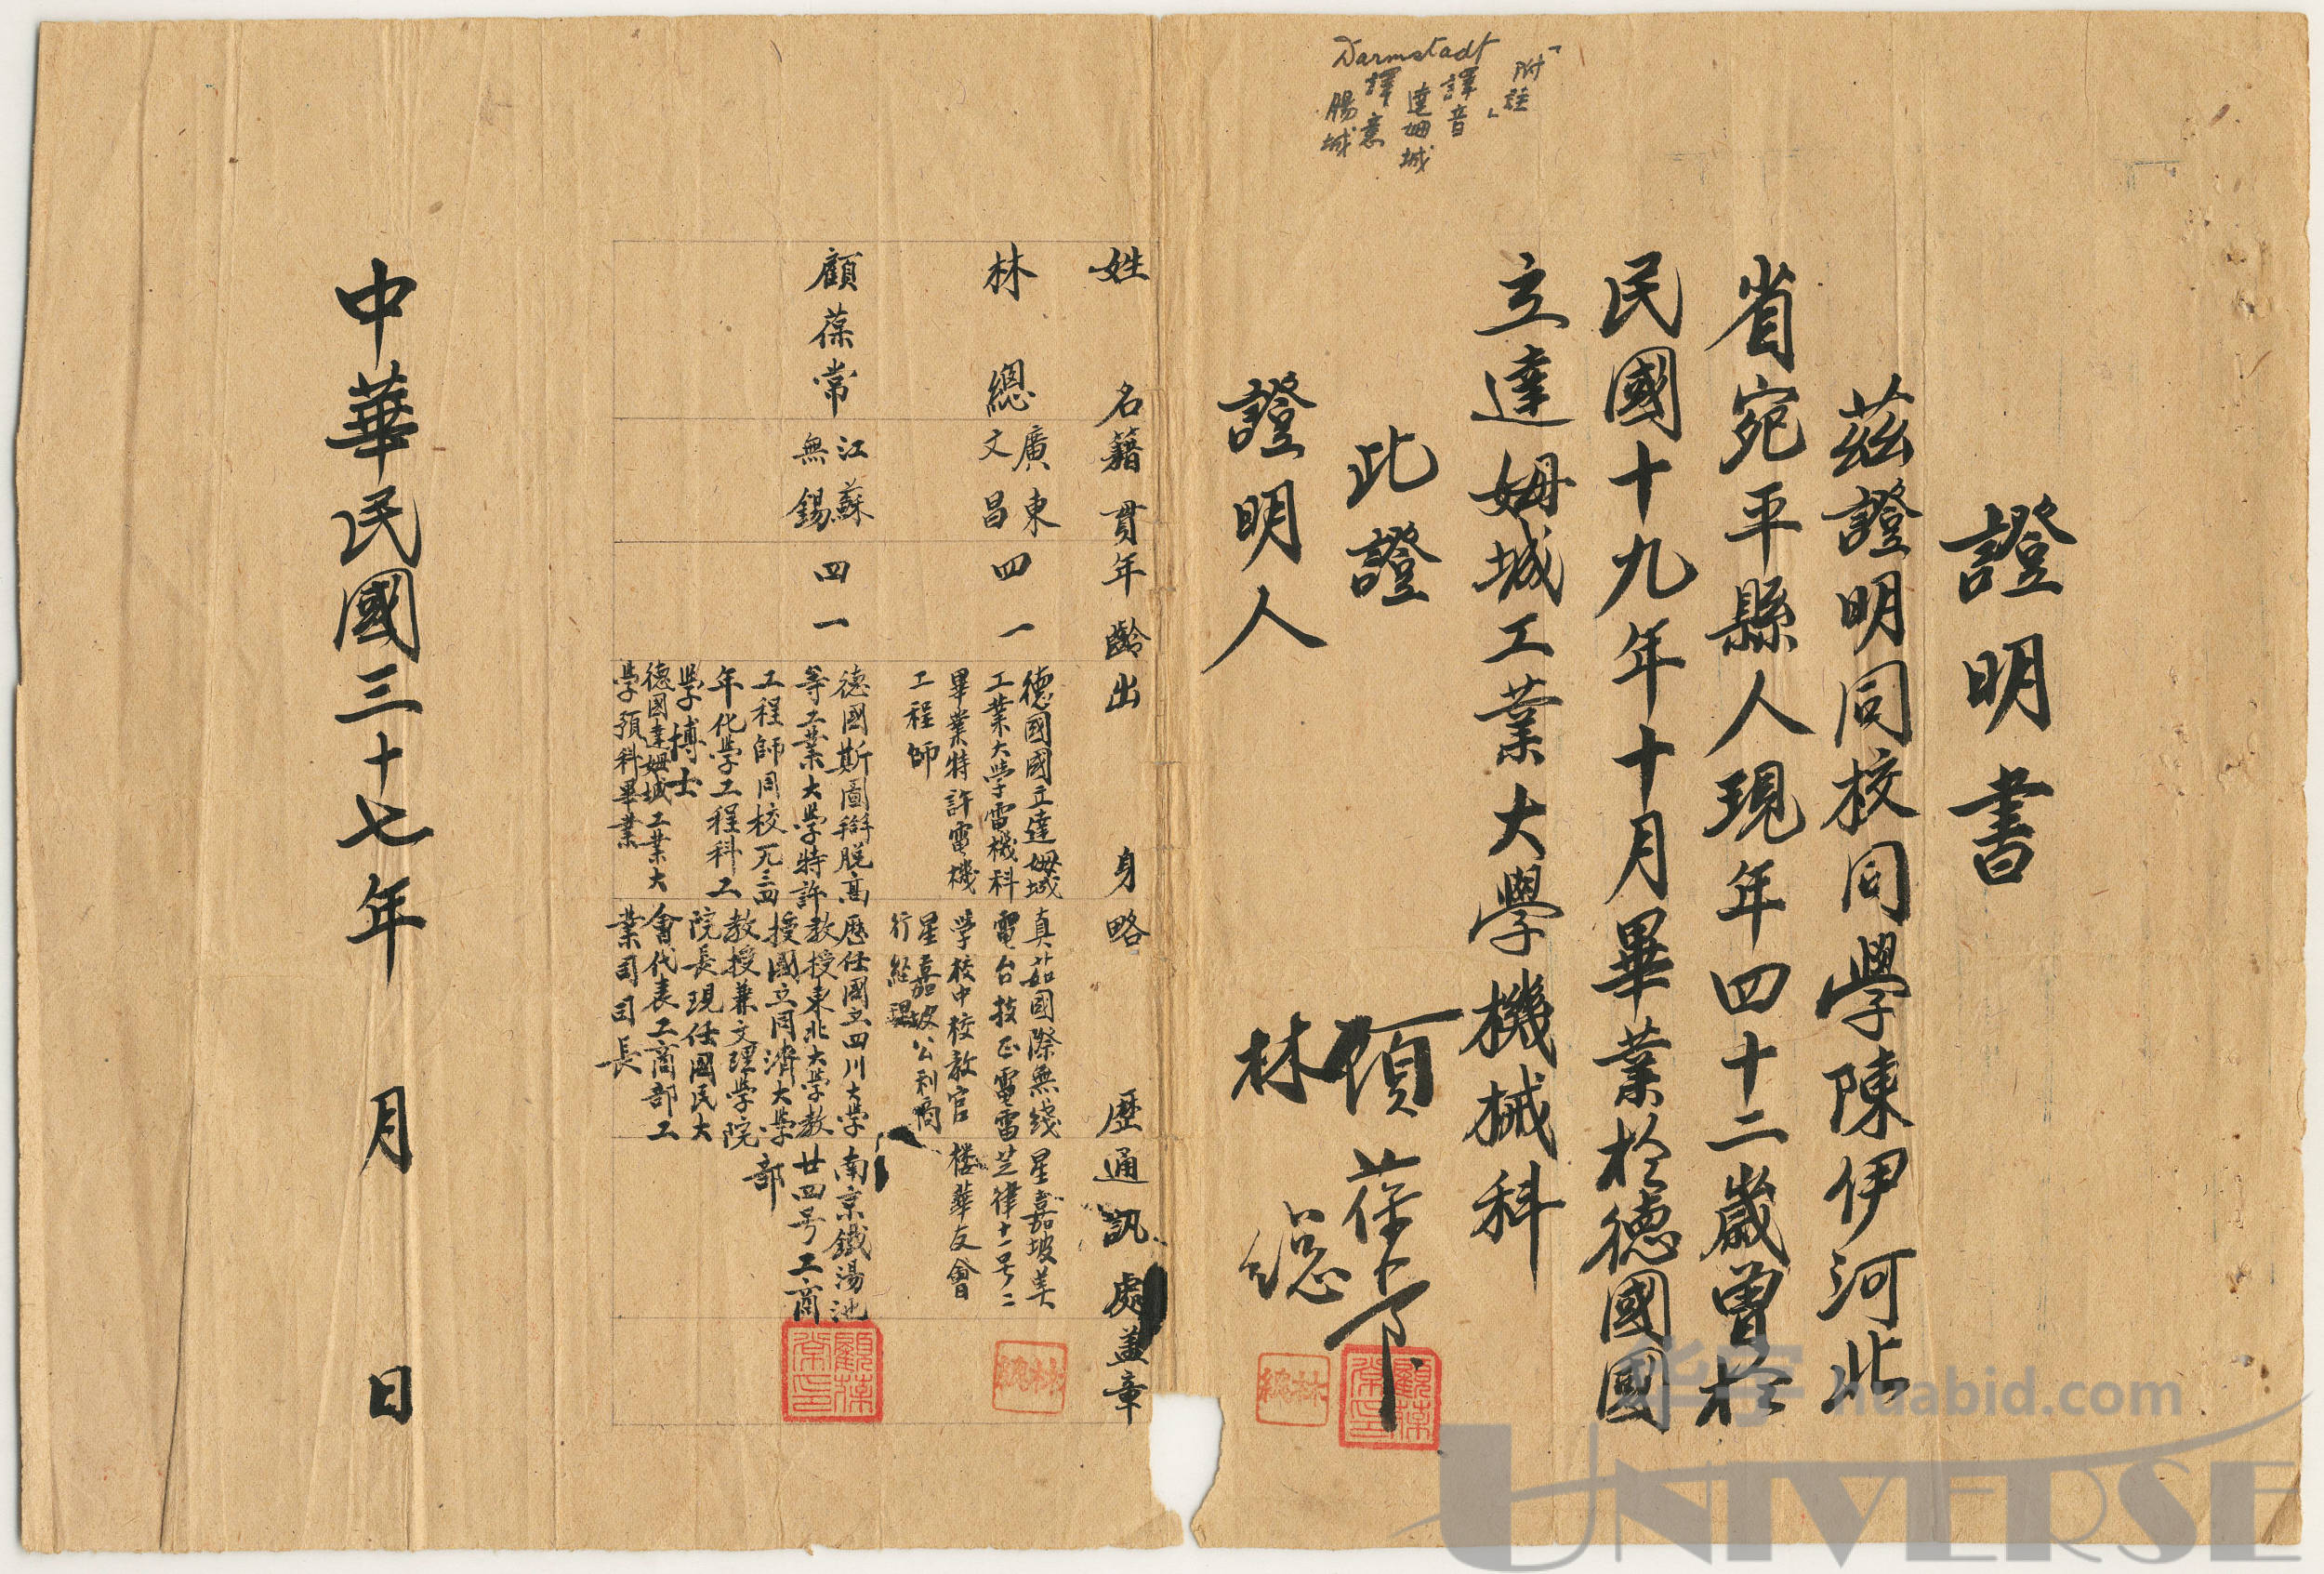 證明書
茲證明同校同學陳伊河北
省宛平縣人現年四十二歲曾於
民國十九年十月畢業於德國國
立達姆城工業大學機械科
此證
證明人
顧葆常
林總
「附註」
Darmstadt
譯音
達姆城
擇意
腸城
姓名 籍貫 年齡 出身 略歷 通訊處 蓋章
林總
廣東
文昌
四一
德國國立達姆城
工業大學電機科
畢業特許電機
工程師
真茹國際無綫
電台技正電雷
學校中校教官
星嘉坡公利商
行経理
星嘉坡美
芝律十一号二
楼華友會
林總
顧葆常
江蘇
無錫
四一
德國斯圖辯脫高
等工業大學特許
工程師同校一九三四
年化學工程科工
學博士
德國達姆城工業大
學預科畢業
歷任國立四川大學
教授東北大學教
授國立同濟大學
教授兼文理學院
院長現任國民大
會代表工商部工
業司司長
南京鐵湯池
廿四号工商
部
顧葆常印
中華民國三十七年 月 日
华宇 huabid.com
UNIVERSE